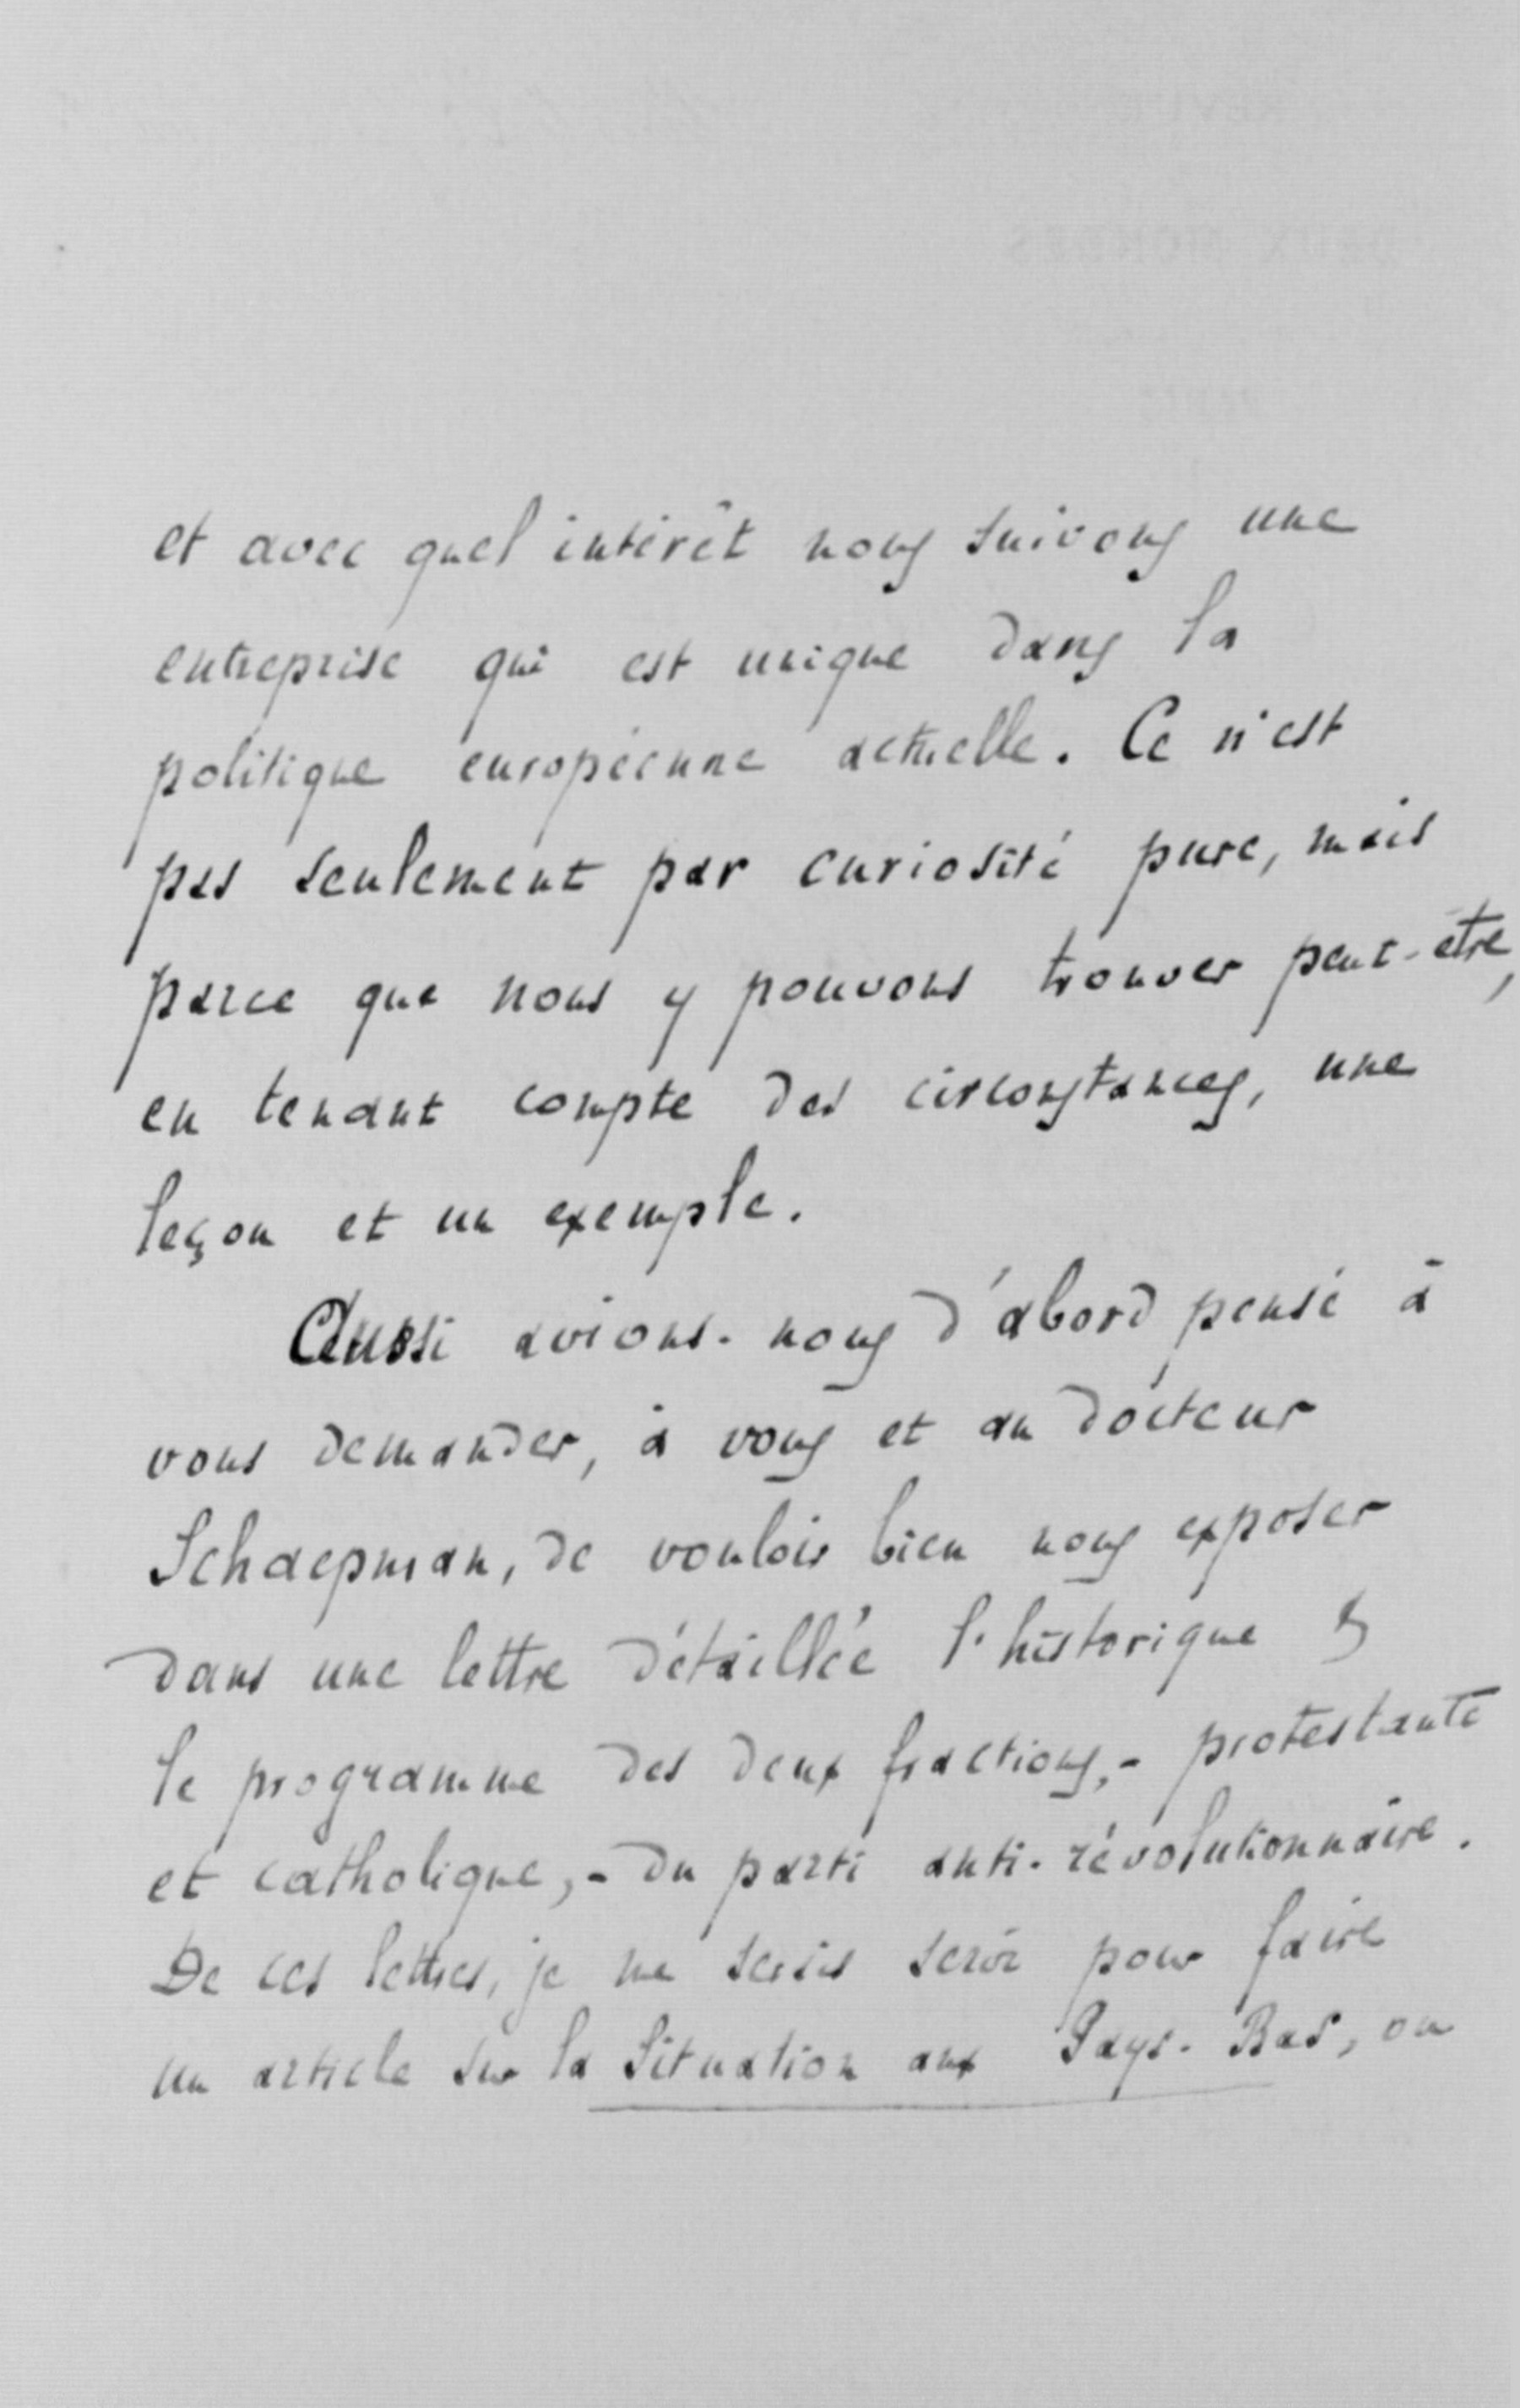 et avec quel intérêt nous suivons une
entreprise qui est unique dans la
politique européenne actuelle. Ce n'est
pas seulement par curiosité pure, mais
parce que nous y pouvons trouver peut-être,
en tenant compte des circonstances, une
leçon et un exemple.
Aussi avions-nous d'abord pensé à
vous demander, à vous et au docteur
Schaepman, de vouloir bien nous exposer
dans une lettre détaillée l'historique &
le programme des deux fractions, - protestante
et catholique, - du parti anti-révolutionnaire.
De ces lettres, je me serais servi pour faire
un article sur la Situation aux Pays-Bas, ou